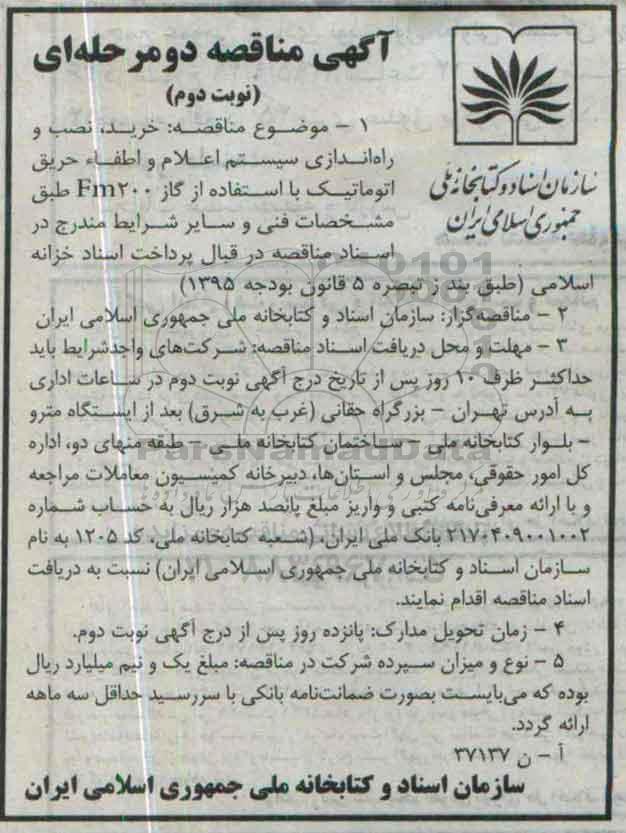 آگهی مناقصه دومرحله‌ای
(نوبت دوم)
سازمان اسناد و کتابخانه ملی
جمهوری اسلامی ایران
۱ – موضوع مناقصه: خرید، نصب و
راه‌اندازی سیستم اعلام و اطفاء حریق
اتوماتیک با استفاده از گاز Fm۲۰۰ طبق
مشخصات فنی و سایر شرایط مندرج در
اسناد مناقصه در قبال پرداخت اسناد خزانه
اسلامی (طبق بند ز تبصره ۵ قانون بودجه ۱۳۹۵)
۲ – مناقصه‌گزار: سازمان اسناد و کتابخانه ملی جمهوری اسلامی ایران
۳ – مهلت و محل دریافت اسناد مناقصه: شرکت‌های واجدشرایط باید
حداکثر ظرف ۱۰ روز پس از تاریخ درج آگهی نوبت دوم در ساعات اداری
به آدرس تهران – بزرگراه حقانی (غرب به شرق) بعد از ایستگاه مترو
– بلوار کتابخانه ملی – ساختمان کتابخانه ملی – طبقه منهای دو، اداره
کل امور حقوقی، مجلس و استان‌ها، دبیرخانه کمیسیون معاملات مراجعه
و با ارائه معرفی‌نامه کتبی و واریز مبلغ پانصد هزار ریال به حساب شماره
۲۱۷۰۴۰۹۰۰۱۰۰۲ بانک ملی ایران، (شعبه کتابخانه ملی، کد ۱۲۰۵ به نام
سازمان اسناد و کتابخانه ملی جمهوری اسلامی ایران) نسبت به دریافت
اسناد مناقصه اقدام نمایند.
۴ – زمان تحویل مدارک: پانزده روز پس از درج آگهی نوبت دوم.
۵ – نوع و میزان سپرده شرکت در مناقصه: مبلغ یک و نیم میلیارد ریال
بوده که می‌بایست بصورت ضمانت‌نامه بانکی با سررسید حداقل سه ماهه
ارائه گردد.
آ – ن ۳۷۱۳۷
سازمان اسناد و کتابخانه ملی جمهوری اسلامی ایران
ParsNamadData